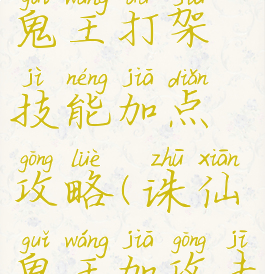 guǐ wáng dǎ jià
鬼王打架
jì néng jiā diǎn
技能加点
gōng lüè zhū xiān
攻略(诛仙
guǐ wáng jiā gōng jī
鬼王加攻击